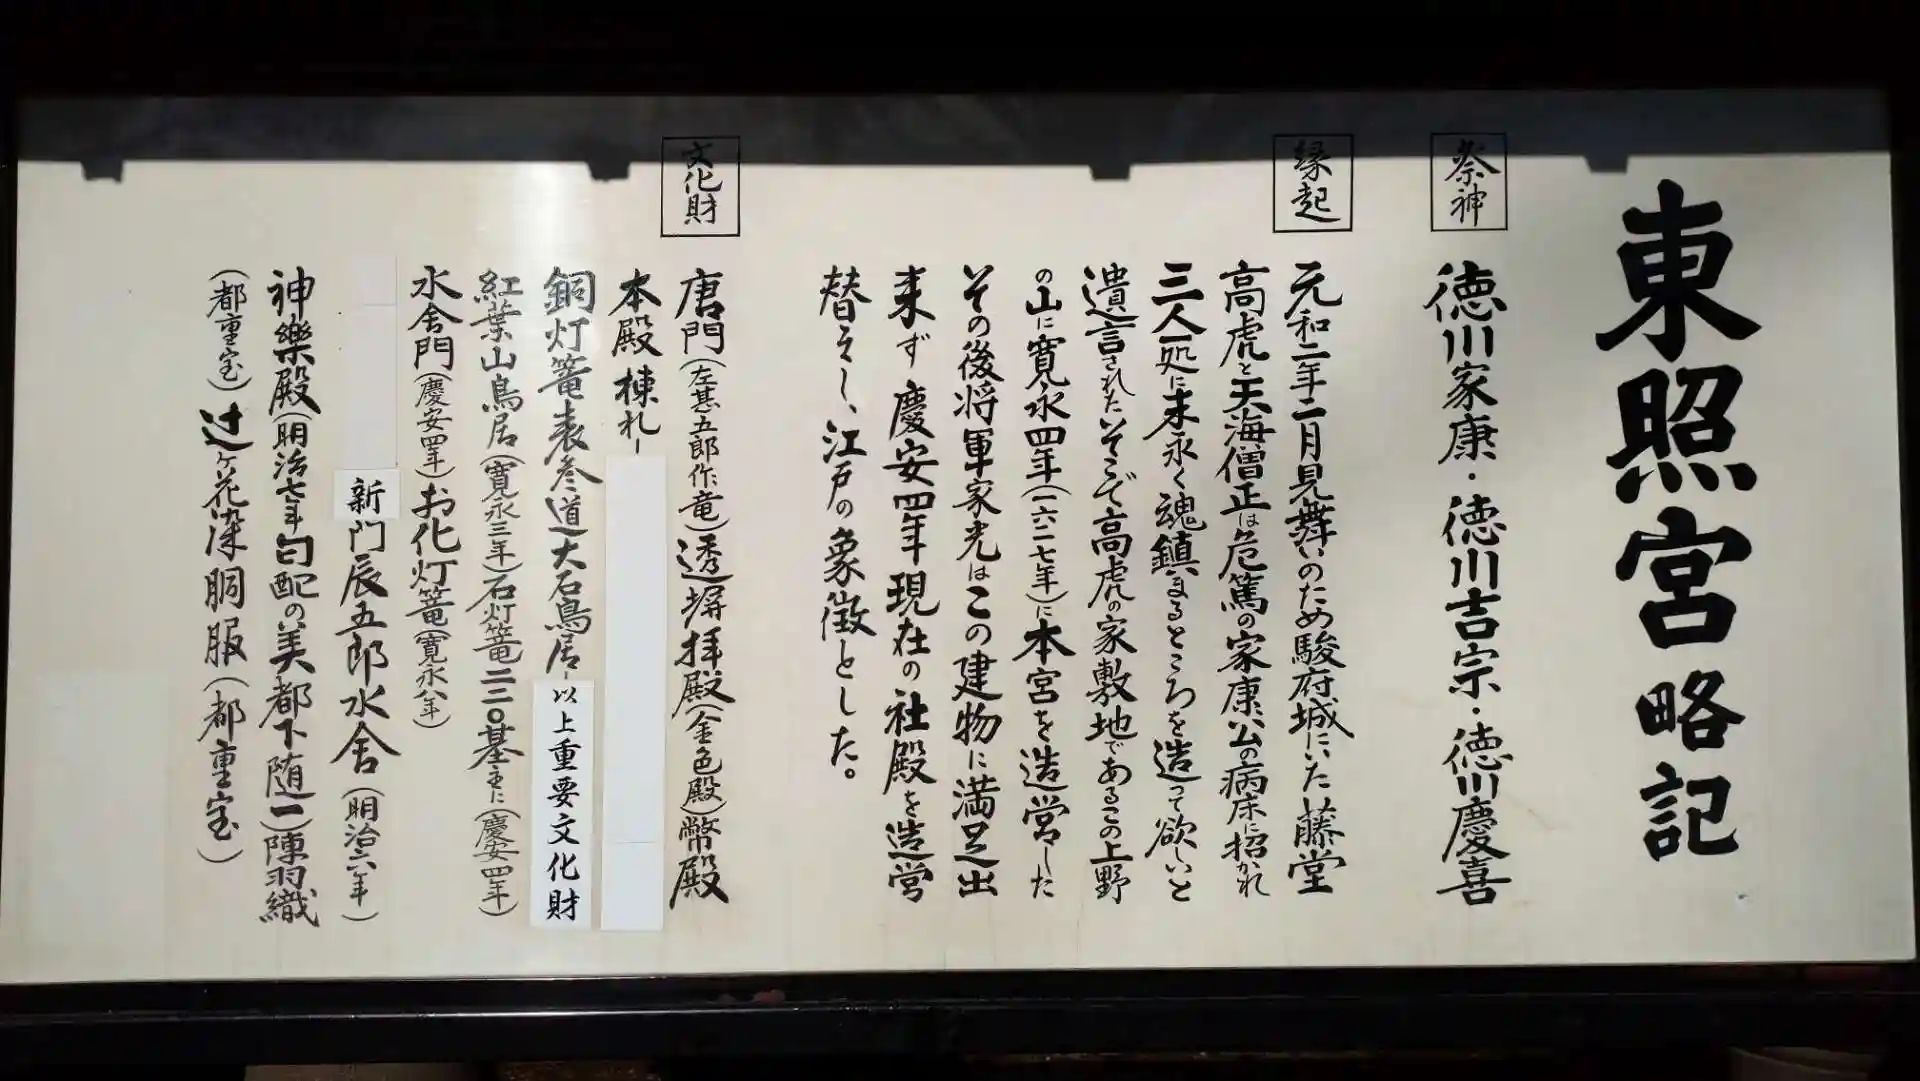 東照宮略記
祭神
徳川家康・徳川吉宗・徳川慶喜
縁起
元和二年二月見舞いのため駿府城にいた藤堂
高虎と天海僧正は危篤の家康公の病床に招かれ
三人一処に末永く魂鎮まるところを造って欲しいと
遺言されたいそこで高虎の家敷地であるこの上野
の山に寛永四年(一六二七年)に本宮を造営した
その後将軍家光はこの建物に満足出
来ず慶安四年現在の社殿を造営
替えし、江戸の象徴とした。
文化財
唐門(左甚五郎作竜)透塀拝殿(金色殿)幣殿
本殿棟札ー
銅灯篭表参道大石鳥居ー以上重要文化財
紅葉山鳥居(寛永三年)石灯篭二二〇基主に(慶安四年)
水舎門(慶安四年)お化灯篭(寛永八年)
新門辰五郎水舎(明治六年)
神樂殿(明治七年勾配の美都下随一)陣羽織
(都重宝)辻ヶ花染胴服(都重宝)